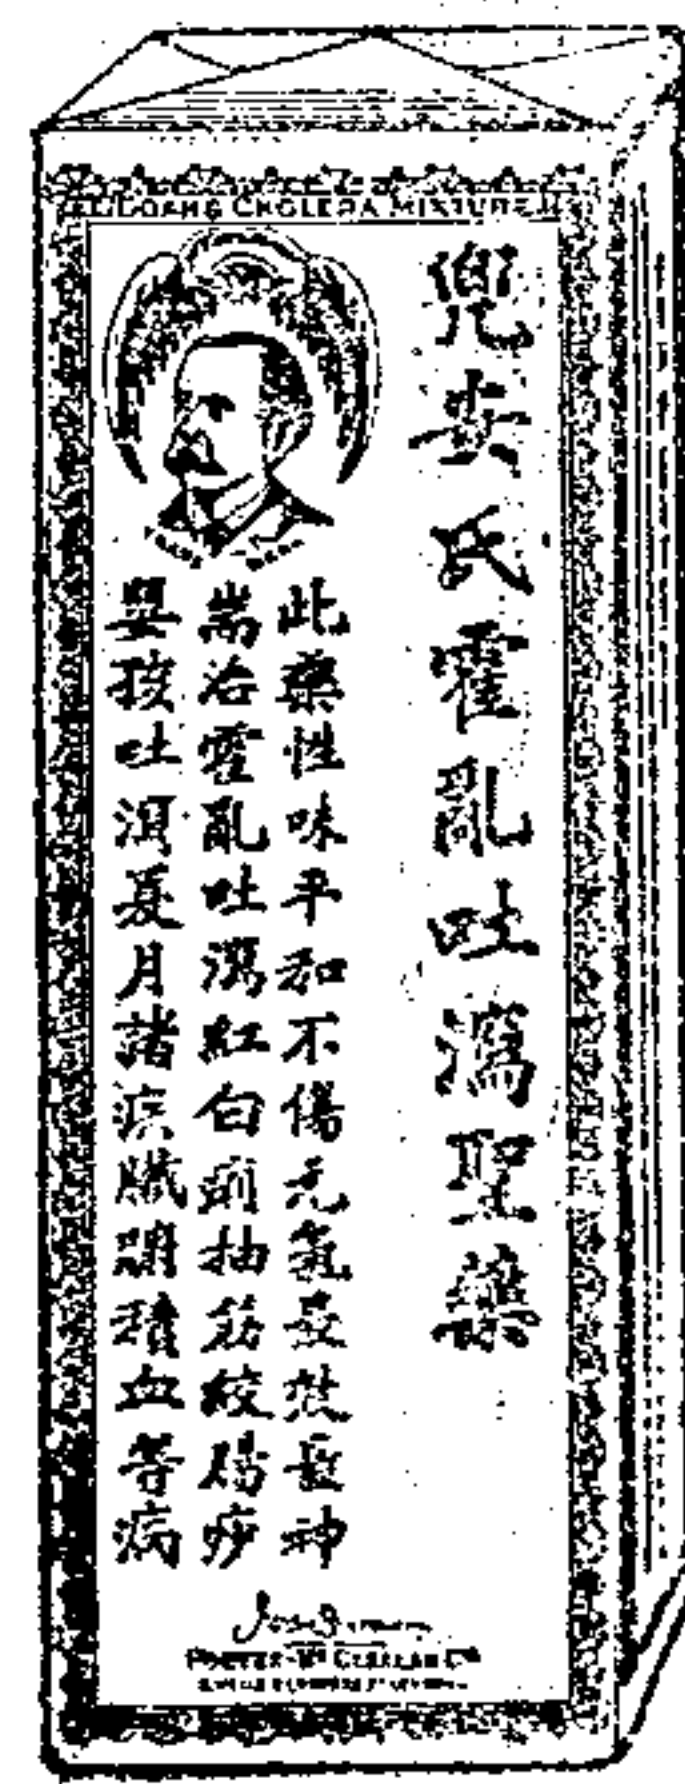 DOANS CHOLERA MIXTURE
兜安氏霍亂吐瀉聖藥
此藥性味平和不傷元氣最效最神
耑治霍亂吐瀉紅白痢抽筋絞腸痧
嬰孩吐瀉夏月諸疾臟崩積血等病
FOSTER-McCLELLAN Co